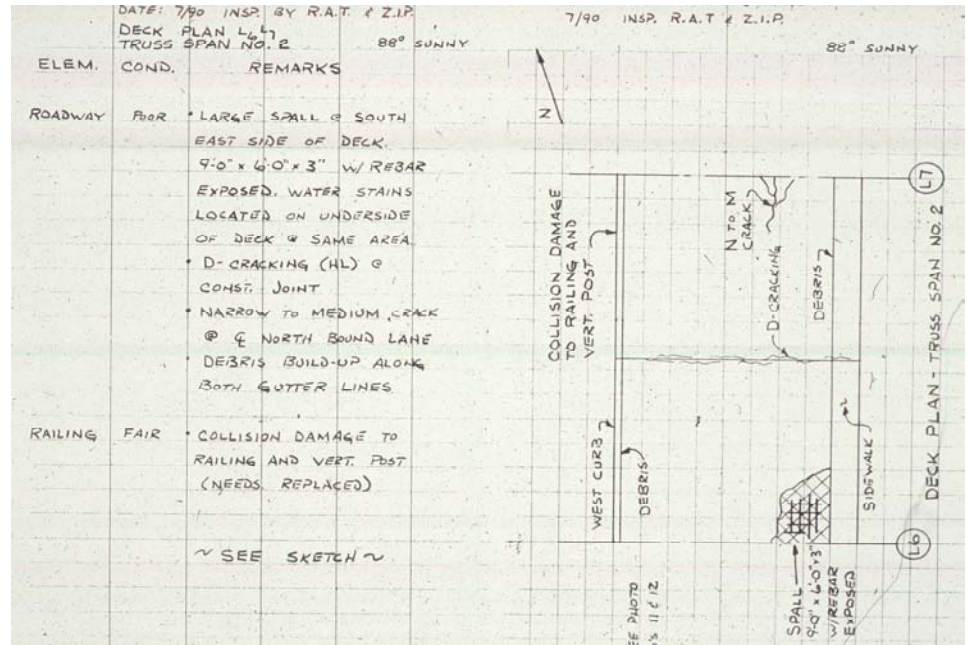 DATE: 7/90 INSP. BY R.A.T. & Z.I.P.
DECK PLAN L6L7
TRUSS SPAN NO. 2 88° SUNNY
ELEM. COND. REMARKS
ROADWAY POOR • LARGE SPALL @ SOUTH
EAST SIDE OF DECK.
9'-0" x 6'-0" x 3" W/ REBAR
EXPOSED. WATER STAINS
LOCATED ON UNDERSIDE
OF DECK @ SAME AREA
• D-CRACKING (HL) @
CONST. JOINT
• NARROW TO MEDIUM CRACK
@ ℄ NORTH BOUND LANE
• DEBRIS BUILD-UP ALONG
BOTH GUTTER LINES
RAILING FAIR • COLLISION DAMAGE TO
RAILING AND VERT. POST
(NEEDS REPLACED)
~ SEE SKETCH ~
7/90 INSP. R.A.T & Z.I.P.
88° SUNNY
N
COLLISION DAMAGE
TO RAILING AND
VERT. POST
N TO M
CRACK
D-CRACKING
DEBRIS
L7
WEST CURB
DEBRIS
SIDEWALK
DECK PLAN - TRUSS SPAN NO. 2
L6
SPALL
9'-0" x 6'-0" x 3"
W/REBAR
EXPOSED
EE PHOTO
's 11 & 12